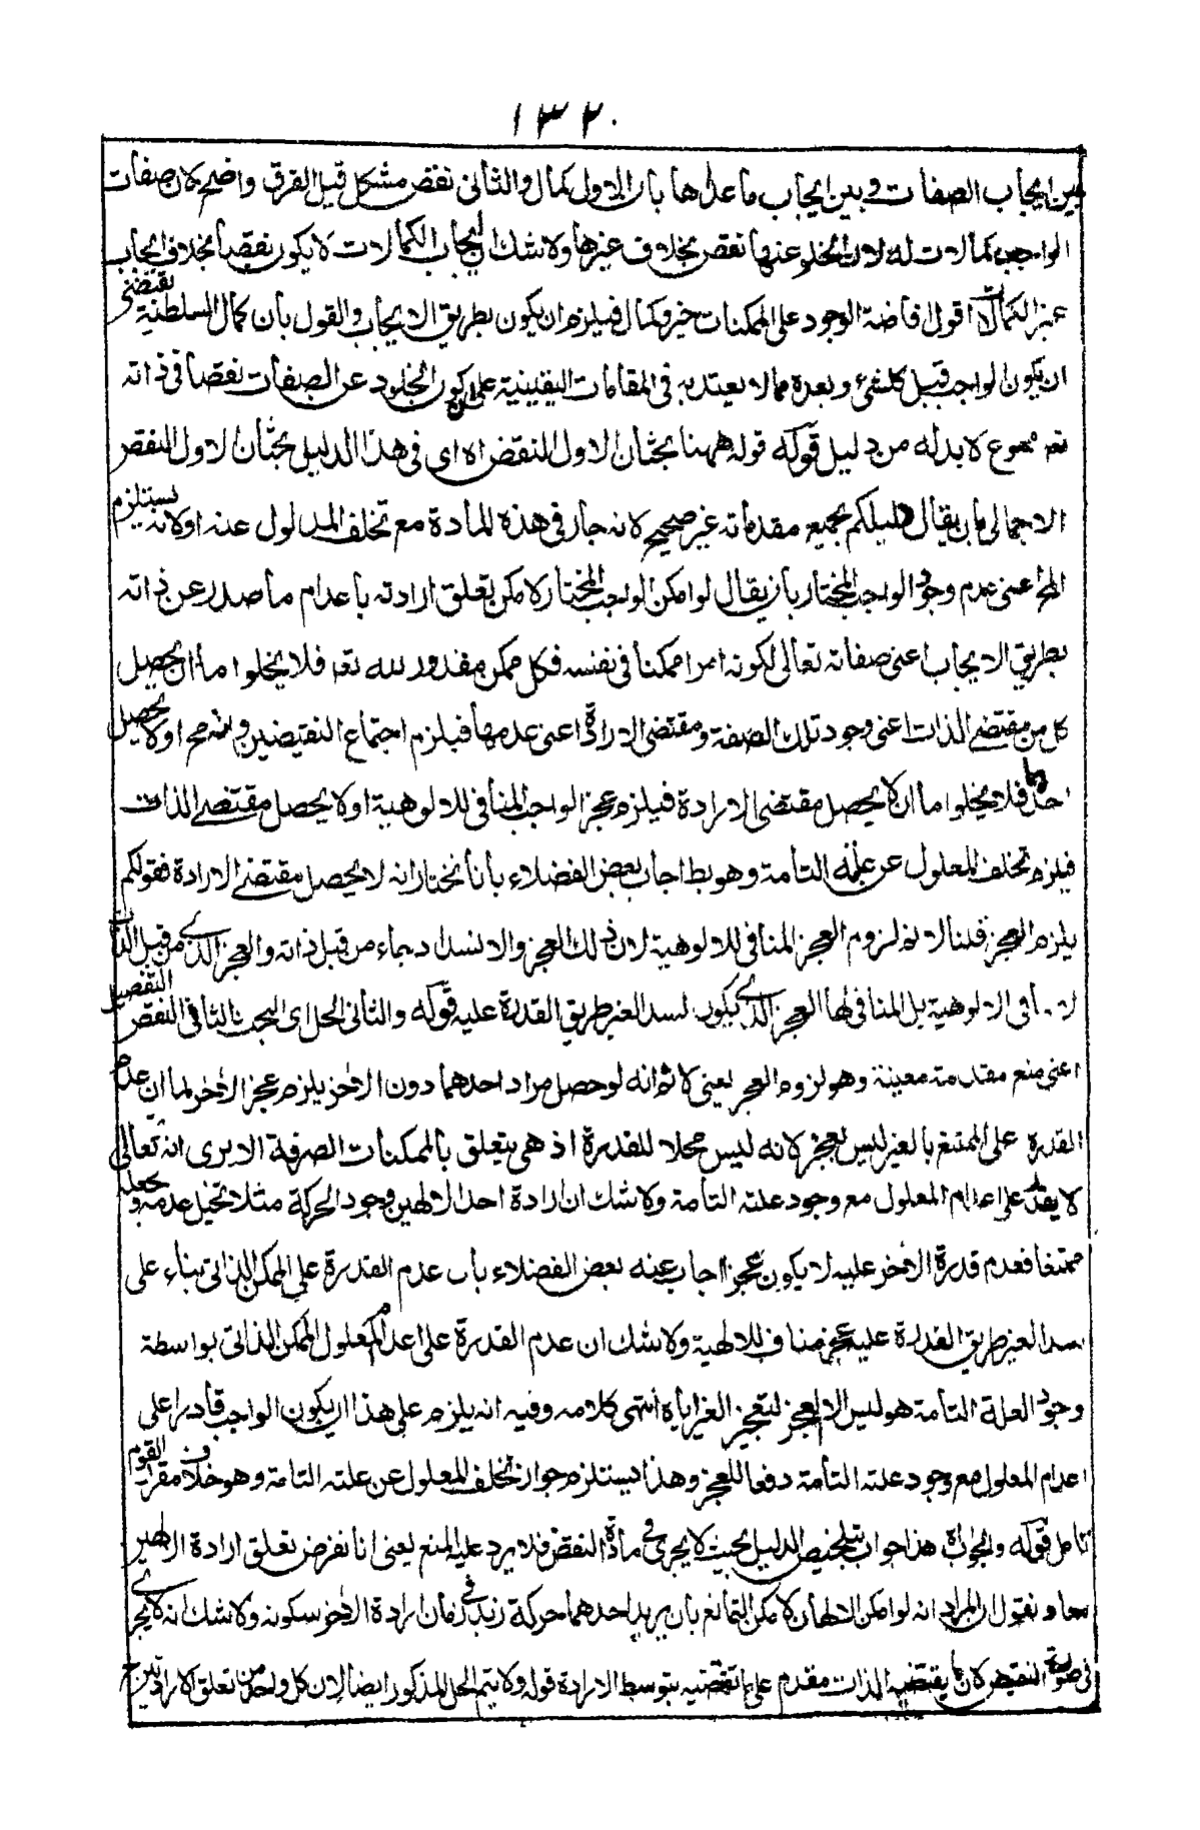 ١٣٢٠
بين ايجاب الصفات وبين ايجاب ما عداها بان الاول كمال والثانى نقص مشكل قيل الفرق واضح كان صفات
الواجب كمالات له لان الخلو عنها نقص بخلاف غيرها ولا شك ان ايجاب الكمالات لا يكون نقصا بخلاف ايجاب
غير الكمالات اقول افاضة الوجود على الممكنات خير وكمال فيلزم ان يكون بطريق الايجاب والقول بان كمال السلطنة يقتضى
ان يكون الواجب قبل كل شئ وبعده مما لا يعتد به فى المقامات اليقينية على ان كون الخلو عن الصفات نقصا فى ذاته
تعم ممنوع لا بد له من دليل قوله قوله ههنا بحثان الاول النقض اه اى فى هذا الدليل بحثان الاول النقض
الاجمالى بان يقال دليلكم بجميع مقدماته غير صحيح لانه جار فى هذه المادة مع تخلف المدلول عنه اولانه يستلزم
المح اعنى عدم وجود الواجب المختار بان يقال لو امكن الواجب المختار لامكن تعلق ارادته باعدام ما صدر عن ذاته
بطريق الايجاب اعنى صفاته تعالى لكونه امرا ممكنا فى نفسه فكل ممكن مقدور لله تعه فلا يخلوا ما ان يحصل
كل من مقتضى الذات اعنى وجود تلك الصفة ومقتضى الارادة اعنى عدمها فيلزم اجتماع النقيضين وانه مح اولا يحصل
احدهما فلا يخلوا ما ان لا يحصل مقتضى الارادة فيلزم عجز الواجب المنافى للالوهية اولا يحصل مقتضى الذات
فيلزم تخلف المعلول عن علته التامة وهو بط اجاب بعض الفضلاء بانا نختار انه لا يحصل مقتضى الارادة فقولكم
يلزم العجز قلنا لا نم لزوم العجز المنافى للالوهية لان ذلك العجز والانسداد جاء من قبل ذاته والعجز الذى من قبل الذات
لا ينافى الالوهية بل المنافى لها العجز الذى يكون لسد الغير طريق القدرة عليه قوله والثانى الحل اى البحث الثانى النقض التفصيلى
اعنى منع مقدمة معينة وهو لزوم العجز يعنى لا نم انه لو حصل مراد احدهما دون الاخر يلزم عجز الاخر لما ان عدم
القدرة على الممتنع بالغير ليس بعجز لانه ليس محلا للقدرة اذ هى يتعلق بالممكنات الصرفة الا يرى انه تعالى
لا يقدر على اعدام المعلول مع وجود علته التامة ولا شك ان ارادة احد الالهين وجود الحركة مثلا تحيل عدمه وجعله
ممتنعا فعدم قدرة الاخر عليه لا يكون عجزا اجاب عنه بعض الفضلاء بان عدم القدرة على الممكن الذاتى بناء على
سد الغير طريق القدرة عليه عجز مناف للالهية ولا شك ان عدم القدرة على اعدام المعلول الممكن الذاتى بواسطة
وجود العلة التامة هو ليس الا العجز لتعجيز الغير اياه انتهى كلامه وفيه انه يلزم على هذا ان يكون الواجب قادرا على
اعدام المعلول مع وجود علته التامة دفعا للعجز وهذا يستلزم جواز تخلف المعلول عن علته التامة وهو خلاف مقرر القوم
تامل قوله والجواب اه هذا جواب بتلخيص الدليل بحيث لا يجرى فى مادة النقض فلا يرد عليه المنع يعنى انا نفرض تعلق ارادة الالهين
معا ونقول ان المراد انه لو امكن الالهان لامكن التمانع بان يريد احدهما حركة زيد فى زمان ارادة الاخر سكونه ولا شك انه لا يجرى
فى صورة النقيض لان ما يقتضيه الذات مقدم على ما تقتضيه بتوسط الارادة قوله ولا يتم الحل المذكور ايضا لان كل واحد من تعلق الارادتين ح